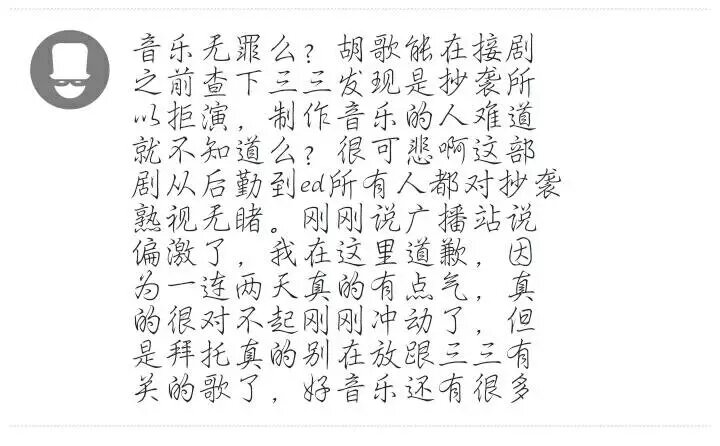 音乐无罪么？胡歌能在接剧
之前查下三三发现是抄袭所
以拒演，制作音乐的人难道
就不知道么？很可悲啊这部
剧从后勤到ed所有人都对抄袭
熟视无睹。刚刚说广播站说
偏激了，我在这里道歉，因
为一连两天真的有点气，真
的很对不起刚刚冲动了，但
是拜托真的别在放跟三三有
关的歌了，好音乐还有很多